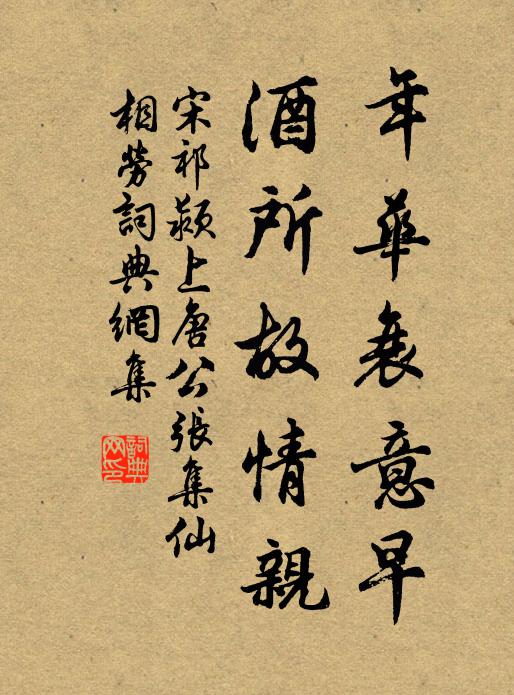 年華衰意早
酒所故情親
宋祁潁上唐公張集仙
相勞詞典網集
詞典
网印